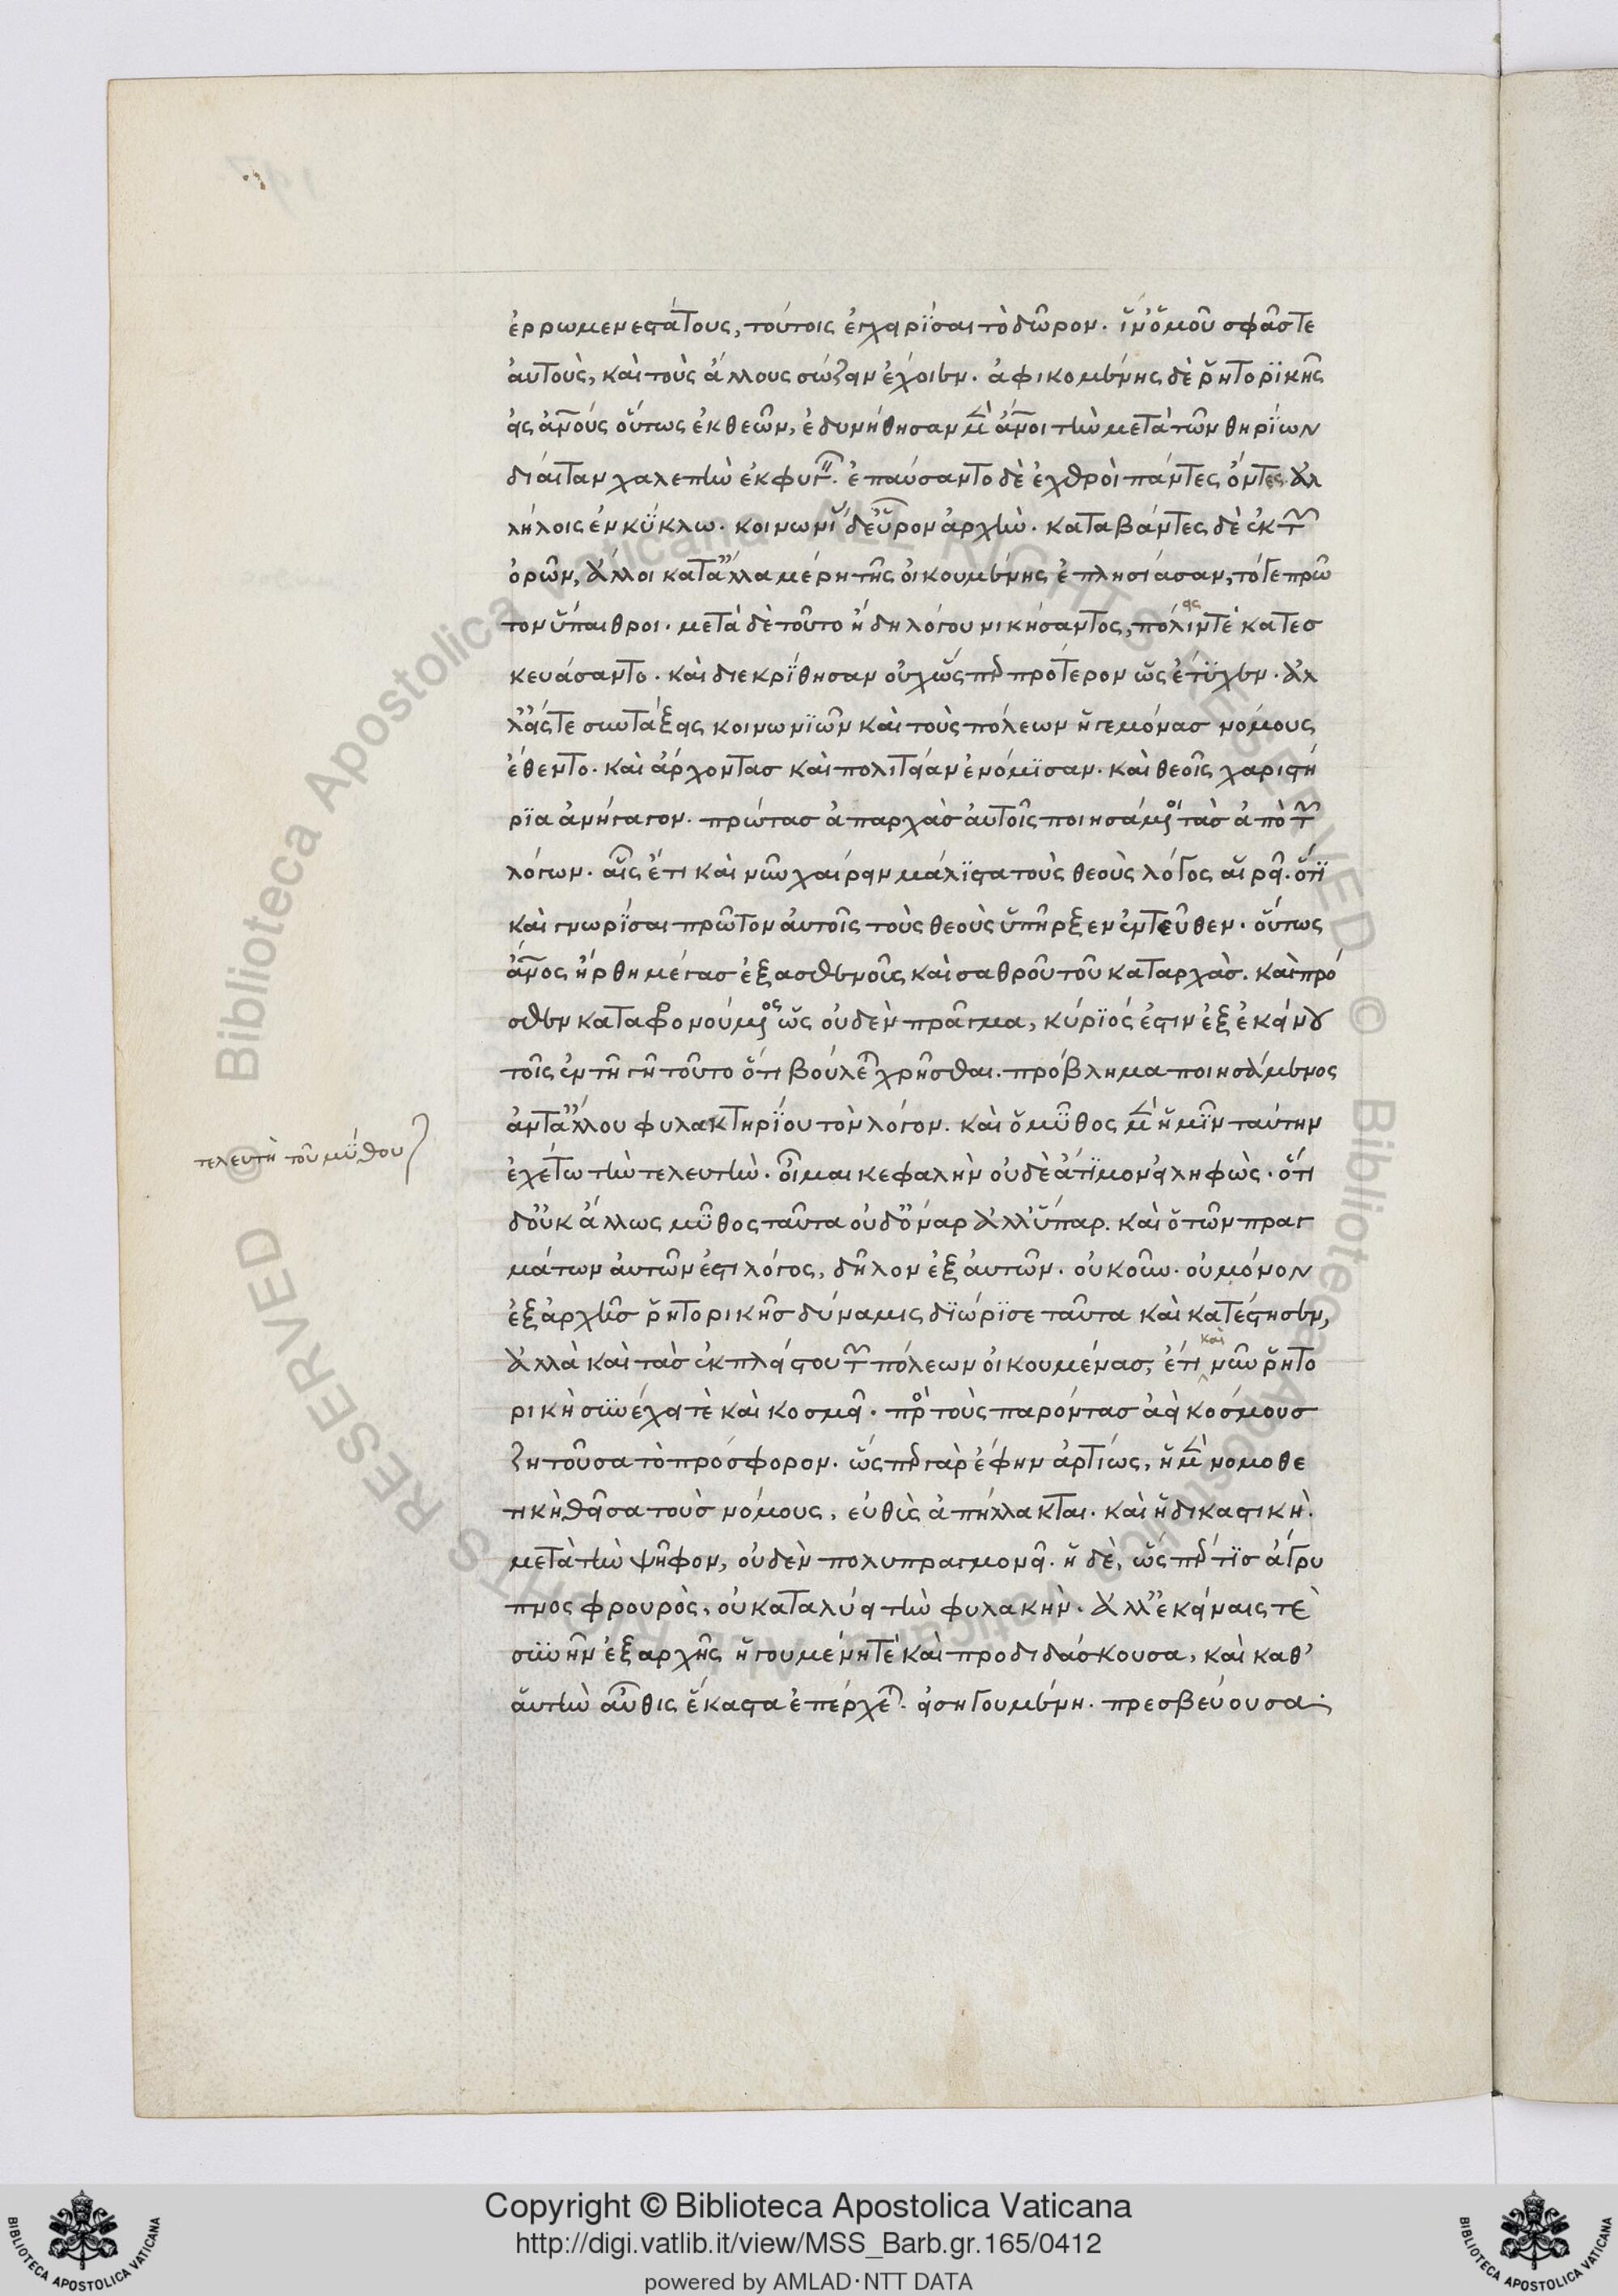 ἐρρωμενεστάτους, τούτοις ἐγχειρίσαι τὸ δῶρον. ἵν' ὁμοῦ σφᾶς τε
αὐτοὺς, καὶ τοὺς ἄλλους σώζειν ἔχοιεν. ἀφικομένης δὲ ῥητορικῆς
εἰς ἀνους οὕτως ἐκ θεῶν, ἐδυνήθησαν μὲν ἄνοι τὴν μετὰ τῶν θηρίων
δίαιταν χαλεπὴν ἐκφυγεῖν. ἐπαύσαντο δὲ ἐχθροὶ πάντες ὄντες ἀλ
λήλοις ἐν κύκλω. κοινωνίας δ' εὗρον ἀρχήν. καταβάντες δὲ ἐκ τῶν
ὀρῶν, ἄλλοι κατ' ἄλλα μέρη τῆς οἰκουμένης ἐπλησίασαν, τό γε πρῶ
τον ὕπαιθροι. μετὰ δὲ τοῦτο ἤδη λόγου νικήσαντος, πόλιν τὲ κατεσ
κευάσαντο. καὶ διεκρίθησαν οὐχ ὥσπερ πρότερον ὡς ἔτυχεν. ἀλ
λ' εἴς τε συντάξεις κοινωνιῶν καὶ τοὺς πόλεων ἡγεμόνας νόμους
ἔθεντο. καὶ ἄρχοντας καὶ πολιτείαν ἐνόμισαν. καὶ θεοῖς χαριστή
ρια ἀνήγαγον. πρώτας ἀπαρχὰς αὐτοῖς ποιησάμενοι τὰς ἀπὸ τῶν
λόγων. αἷς ἔτι καὶ νῦν χαίρειν μάλιστα τοὺς θεοὺς λόγος αἱρεῖ. ὅτι
καὶ γνωρίσαι πρῶτον αὐτοῖς τοὺς θεοὺς ὑπῆρξεν ἐντεῦθεν. οὕτως
ἄνος ἤρθη μέγας ἐξ ἀσθενοῦς καὶ σαθροῦ τοῦ καταρχάς. καὶ πρό
σθεν καταφρονούμενος ὡς οὐδὲν πρᾶγμα, κύριός ἐστιν ἐξ ἐκείνου
τοῖς ἐν τῆ γῆ τοῦτο ὅτι βούλεται χρῆσθαι. πρόβλημα ποιησάμενος
ἀντ' ἄλλου φυλακτηρίου τὸν λόγον. καὶ ὁ μῦθος μὲν ἡμῖν ταύτην
ἐχέτω τὴν τελευτήν. οἶμαι κεφαλὴν οὐδὲ ἄτιμον εἰληφώς. ὅτι
τελευτὴ τοῦ μύθου
δ' οὐκ ἄλλως μῦθος ταῦτα οὐδ' ὄναρ ἀλλ' ὕπαρ. καὶ ὁ τῶν πραγ
μάτων αὐτῶν ἐστι λόγος, δῆλον ἐξ αὐτῶν. οὐκοῦν. οὐ μόνον
ἐξ ἀρχῆς ῥητορικῆς δύναμις διώρισε ταῦτα καὶ κατέστησεν,
ἀλλὰ καὶ τὰς ἐκ πλείστου τῶν πόλεων οἰκουμένας, ἔτι καὶ νῦν ῥητο
ρικὴ συνέχει τὲ καὶ κοσμεῖ. πρὸς τοὺς παρόντας ἀεὶ κόσμους
ζητοῦσα τὸ πρόσφορον. ὥσπερ γὰρ ἔφην ἀρτίως, ἡ μὲν νομοθε
τικὴ θεῖσα τοὺς νόμους, εὐθὺς ἀπήλλακται. καὶ ἡ δικαστικὴ.
μετὰ τὴν ψῆφον, οὐδὲν πολυπραγμονεῖ. ἡ δὲ, ὥσπερ τὶς ἄγρυ
πνος φρουρὸς, οὐ καταλύει τὴν φυλακήν. ἀλλ' ἐκείναις τὲ
συνῆν ἐξ ἀρχῆς ἡγουμένη τὲ καὶ προδιδάσκουσα, καὶ καθ'
αὑτὴν αὖθις ἕκαστα ἐπέρχεται. εἰσηγουμένη. πρεσβεύουσα.
Copyright © Biblioteca Apostolica Vaticana
http://digi.vatlib.it/view/MSS_Barb.gr.165/0412
powered by AMLAD·NTT DATA